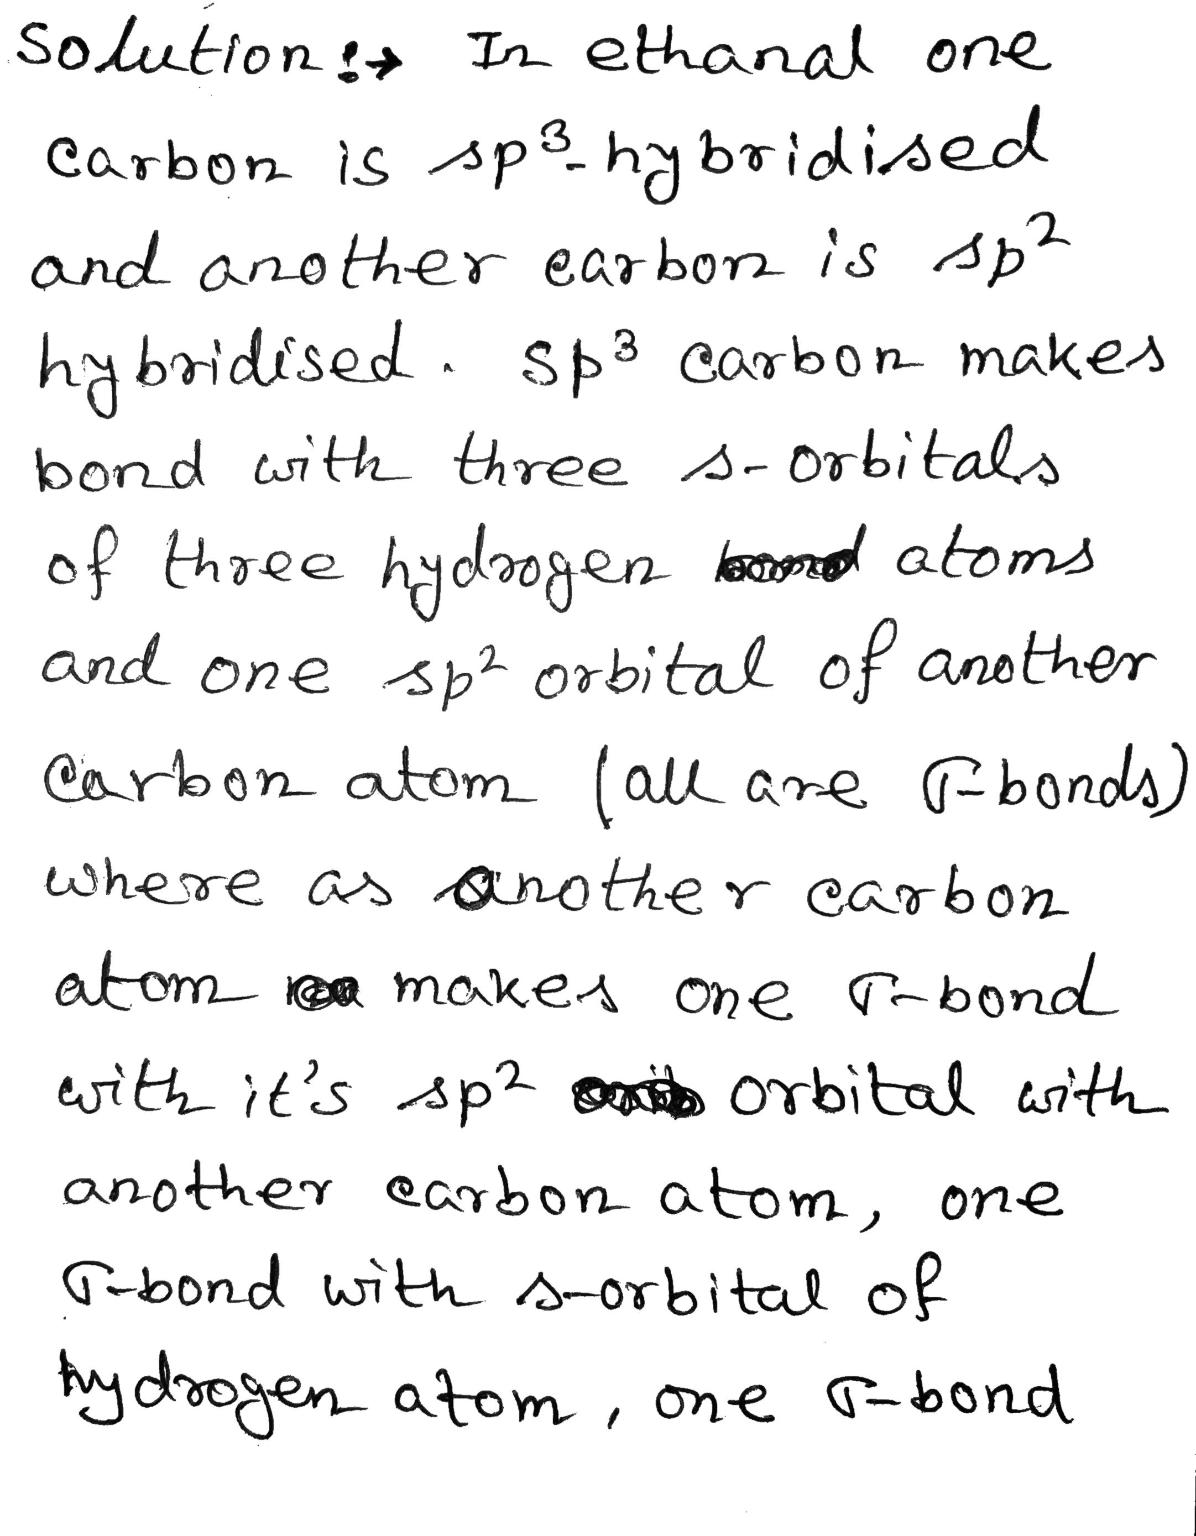 Solution :→ In ethanal one
carbon is sp³-hybridised
and another carbon is sp²
hybridised. sp³ carbon makes
bond with three s-orbitals
of three hydrogen atoms
and one sp² orbital of another
carbon atom (all are σ-bonds)
where as another carbon
atom makes one σ-bond
with it's sp² orbital with
another carbon atom, one
σ-bond with s-orbital of
hydrogen atom, one σ-bond